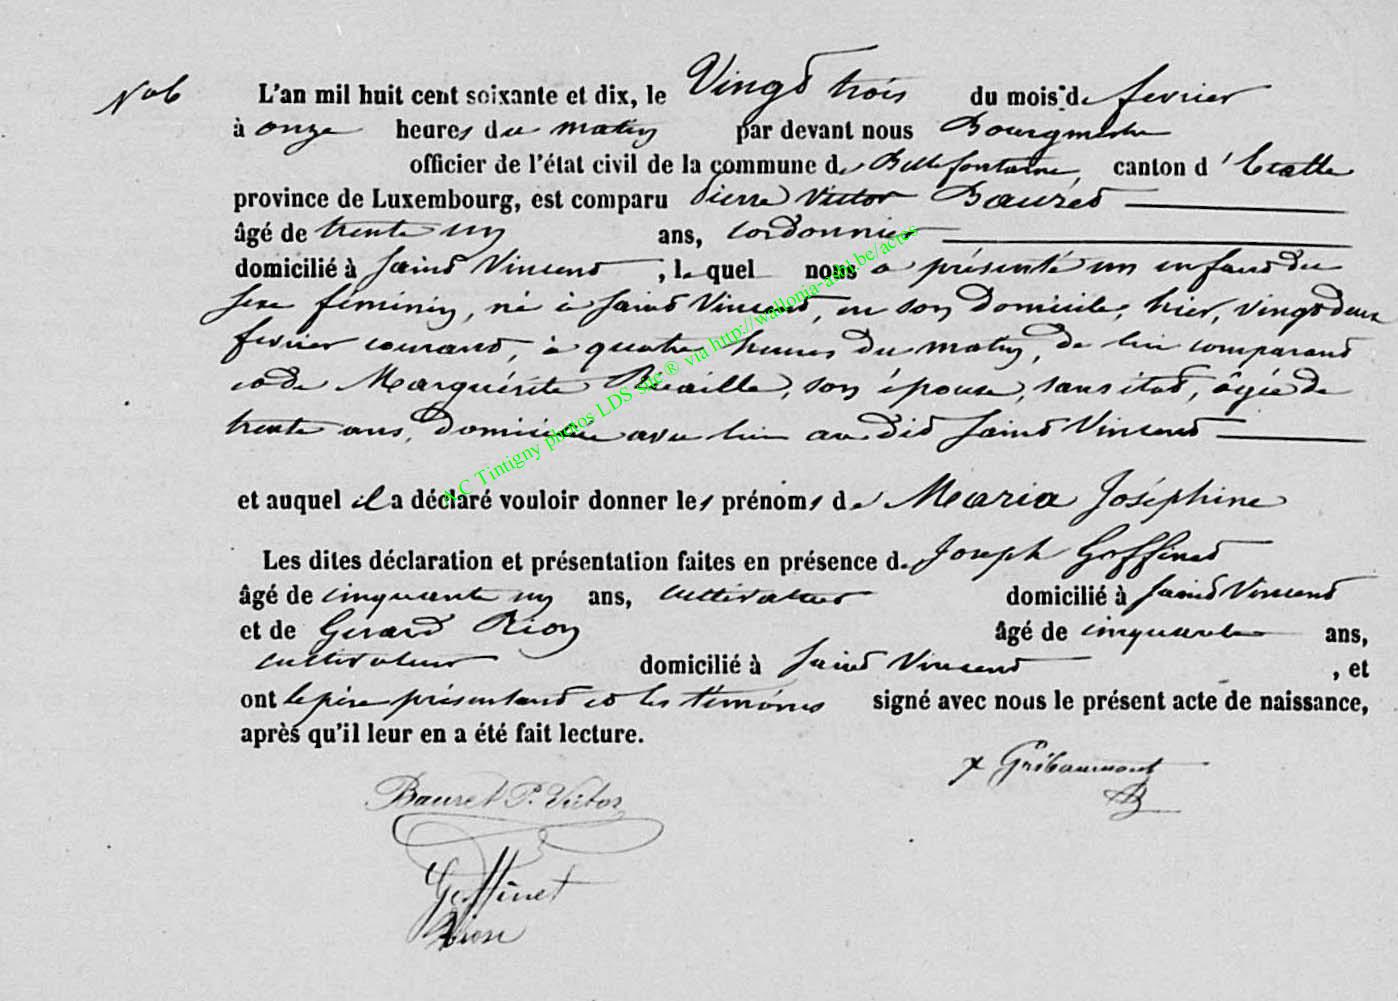 No 6
L'an mil huit cent soixante et dix, le Vingt trois du mois de fevrier
à onze heures du matin par devant nous Bourgmestre
officier de l'état civil de la commune de Bellefontaine, canton d'Etalle
province de Luxembourg, est comparu Pierre Victor Bauret
âgé de trente un ans, cordonnier
domicilié à Saint Vincent, lequel nous a présenté un enfant du
sexe féminin, né à Saint Vincent, en son domicile, hier, vingt deux
fevrier courant, à quatre heures du matin, de lui comparant
et de Marguérite, son épouse, sans état, âgée de
trente ans, domiciliée avec lui au dit Saint Vincent
et auquel il a déclaré vouloir donner les prénoms de Maria Joséphine
Les dites déclaration et présentation faites en présence de Joseph Goffinet
âgé de cinquante un ans, cultivateur domicilié à Saint Vincent
et de Gérard Rion âgé de cinquante ans,
cultivateur domicilié à Saint Vincent, et
ont le père présentant et les témoins signé avec nous le présent acte de naissance,
après qu'il leur en a été fait lecture.
Gribaumont
Bauret P. Victor
Goffinet
Rion
A.C Tintigny photos LDS site ® via http://wallonia-asbl.be/actes